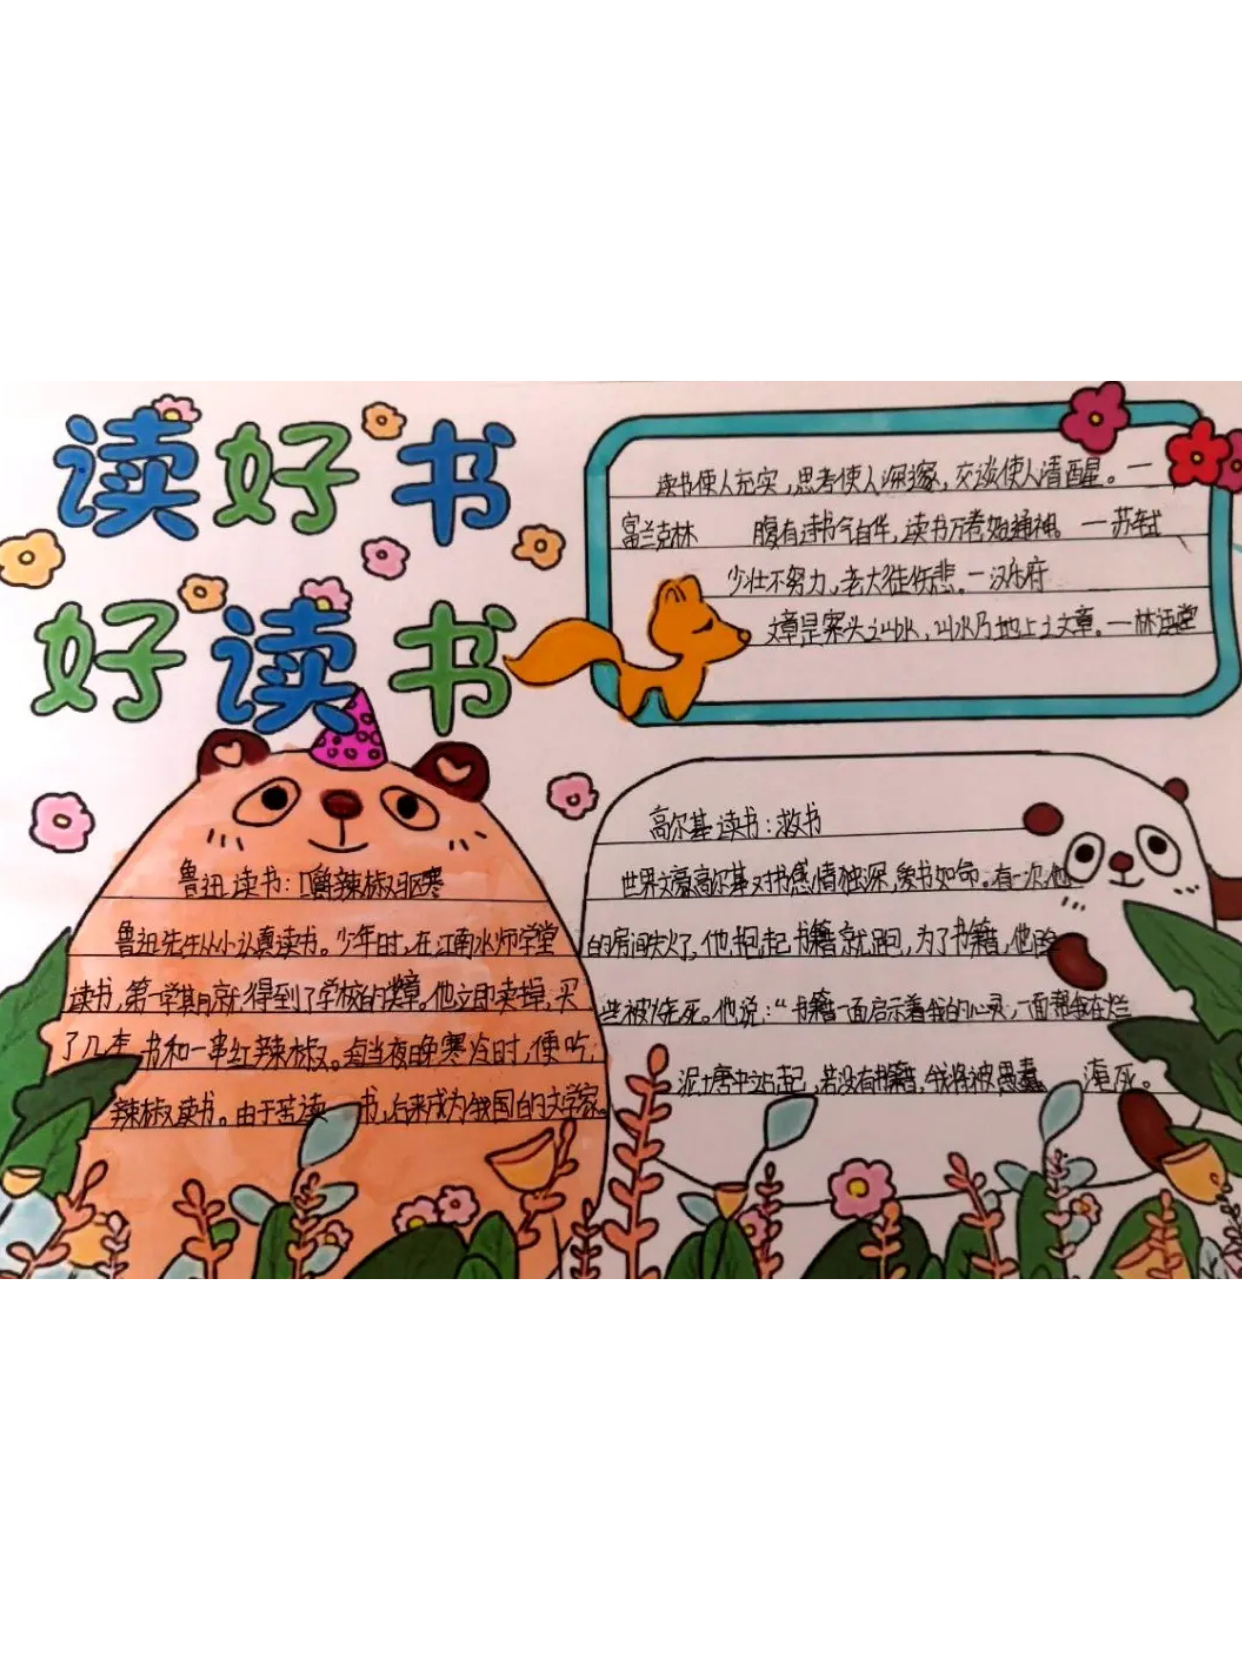 读好书
好读书
读书使人充实，思考使人深邃，交谈使人清醒。一
富兰克林　腹有诗书气自华，读书万卷始通神。一苏轼
少壮不努力，老大徒伤悲。一汉乐府
文章是案头之山水，山水乃地上之文章。一林语堂
鲁迅读书：嚼辣椒驱寒
鲁迅先生从小认真读书。少年时，在江南水师学堂
读书，第一学期就得到了学校的奖章。他立即卖掉，买
了几本书和一串红辣椒。每当夜晚寒冷时，便吃
辣椒读书。由于苦读书，后来成为我国的文学家。
高尔基读书：救书
世界文豪高尔基对书感情独深，爱书如命。有一次，他
的房间失火了，他抱起书籍就跑，为了书籍，他险
些被烧死。他说：“书籍一面启示着我的心灵，一面帮我在烂
泥塘中站起，若没有书籍，我将被愚蠢 淹死。